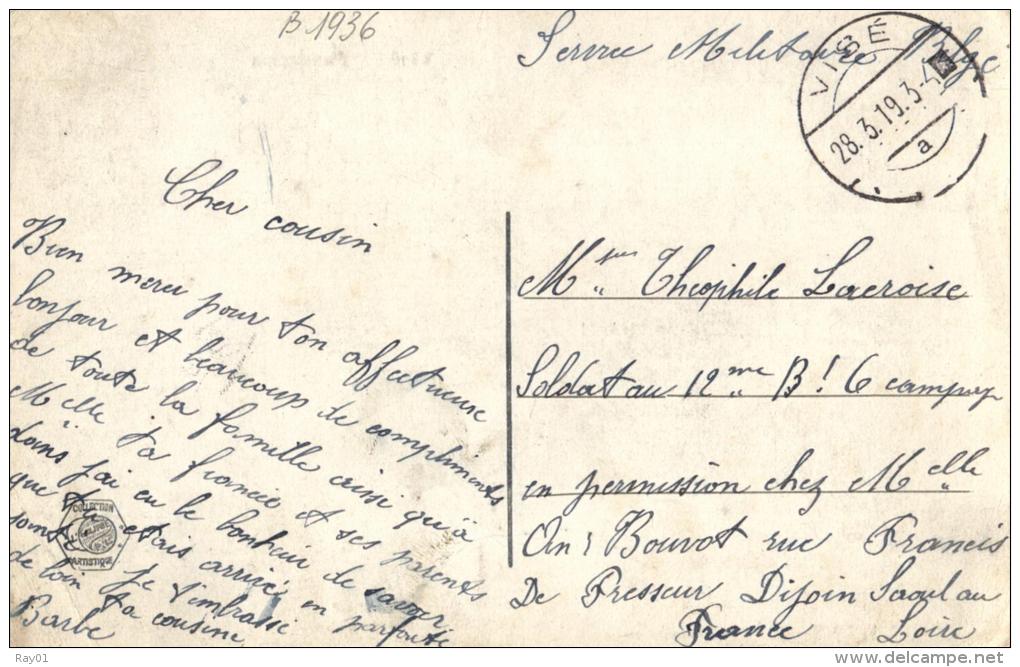 B 1936
Service Militaire Belge
VISÉ
28.3.19.3-4
a
Cher cousin
Bien merci pour ton affectueuse
bonjour et beaucoup de compliments
de toute la famille ainsi qu'à
Melle ta fiancée et ses parents
dans j'ai eu le bonheur de savoir
que tu etais arrivé en parfaite
santé je t'embrasse
de loin ta cousine
Barbe
COLLECTION
ARTISTIQUE
Msieur Théophile Lacroise
Soldat au 12me B! 6 campagn
en permission chez Melle
Bouvot rue Francis
De Presseur Dijoin Saoul au
France Loire
Ray01
http://www.delcampe.net